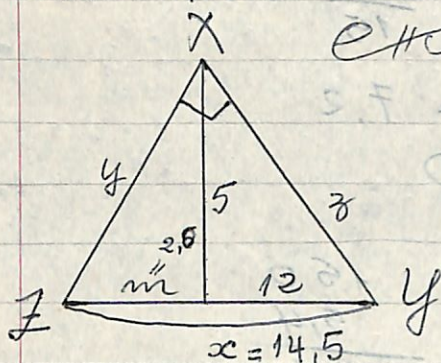 X
y
5
z
2,6
m
12
Z
Y
x = 14,5